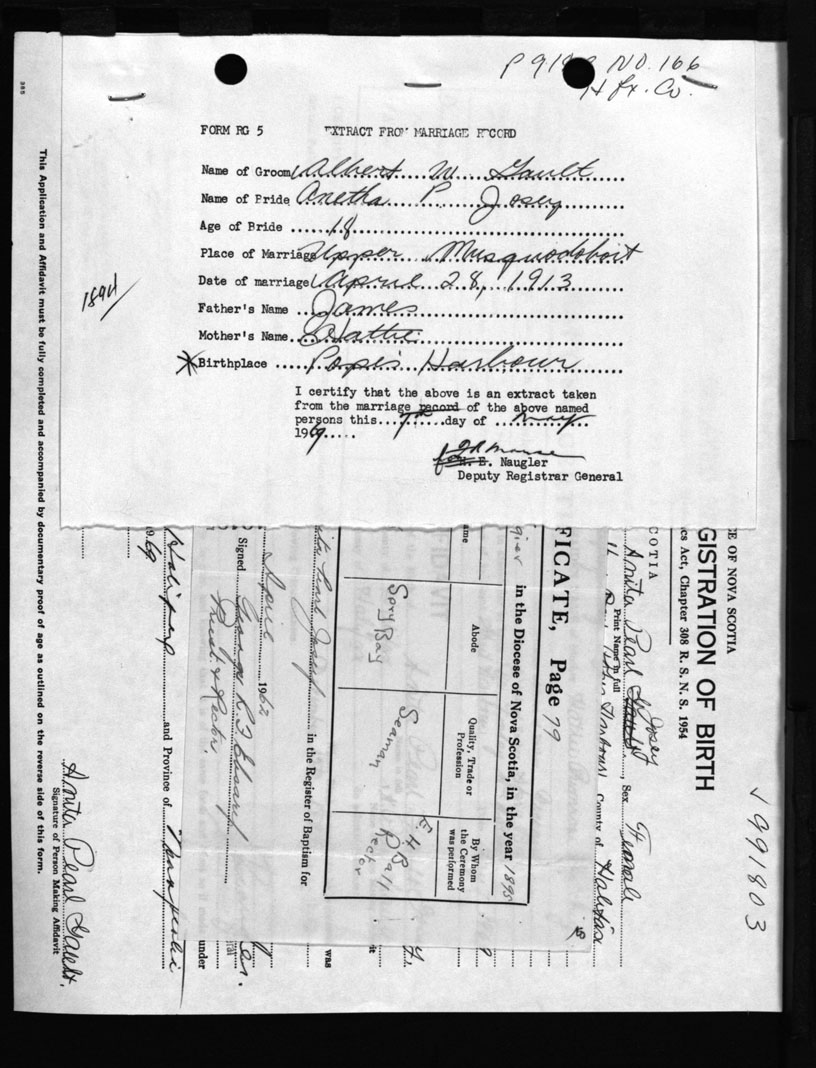 P 918 NO. 166
Hfx. Co.
FORM RG 5 EXTRACT FROM MARRIAGE RECORD
Name of Groom Albert W. Gault
Name of Bride Anetha P. Josey
Age of Bride 18
Place of Marriage Upper Musquodoboit
Date of marriage April 28, 1913
Father's Name James
Mother's Name Hattie
*Birthplace Popes Harbour
I certify that the above is an extract taken
from the marriage record of the above named
persons this 7th day of May
1969
for H. E. Naugler
Deputy Registrar General
1894/
385
This Application and Affidavit must be fully completed and accompanied by documentary proof of age as outlined on the reverse side of this form.
CE OF NOVA SCOTIA
GISTRATION OF BIRTH
cs Act, Chapter 308 R. S. N. S. 1954
COTIA
Josey
Anita Pearl Gault, Sex Female
Print Name in full
County of Halifax
991803
FICATE, Page 79
in the Diocese of Nova Scotia, in the year 1895
ame
Abode
Quality, Trade or
Profession
By Whom
the Ceremony
was performed
Spry Bay
Seaman
E. H. Ball
Rector
in the Register of Baptism for
was
1962
Signed George
Priest & Rector.
under
1969
Halifax and Province of Nova Scotia
Anita Pearl Gault.
Signature of Person Making Affidavit